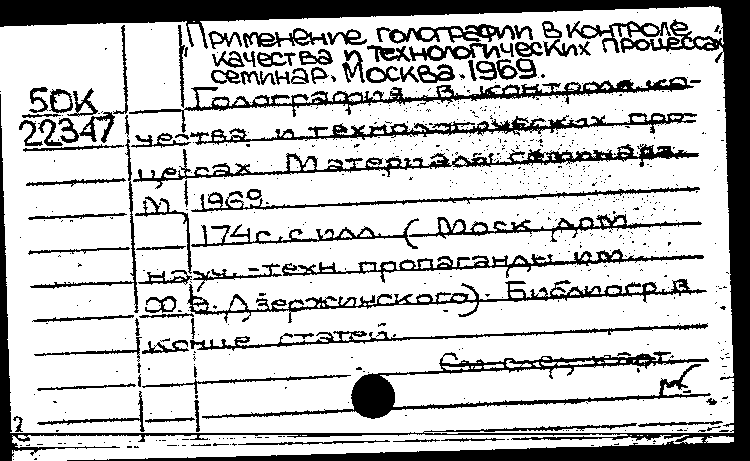 "Применение голографии в контроле
качества и технологических процессах",
семинар. Москва. 1969.
50К
22347
Голография в контроле ка-
чества и технологических про-
цессах Материалы семинара.
М, 1969.
174с. с илл. (Моск. дом
науч.-техн. пропаганды им
Ф.Э. Дзержинского). Библиогр. в
конце статей.
См. след. карт.